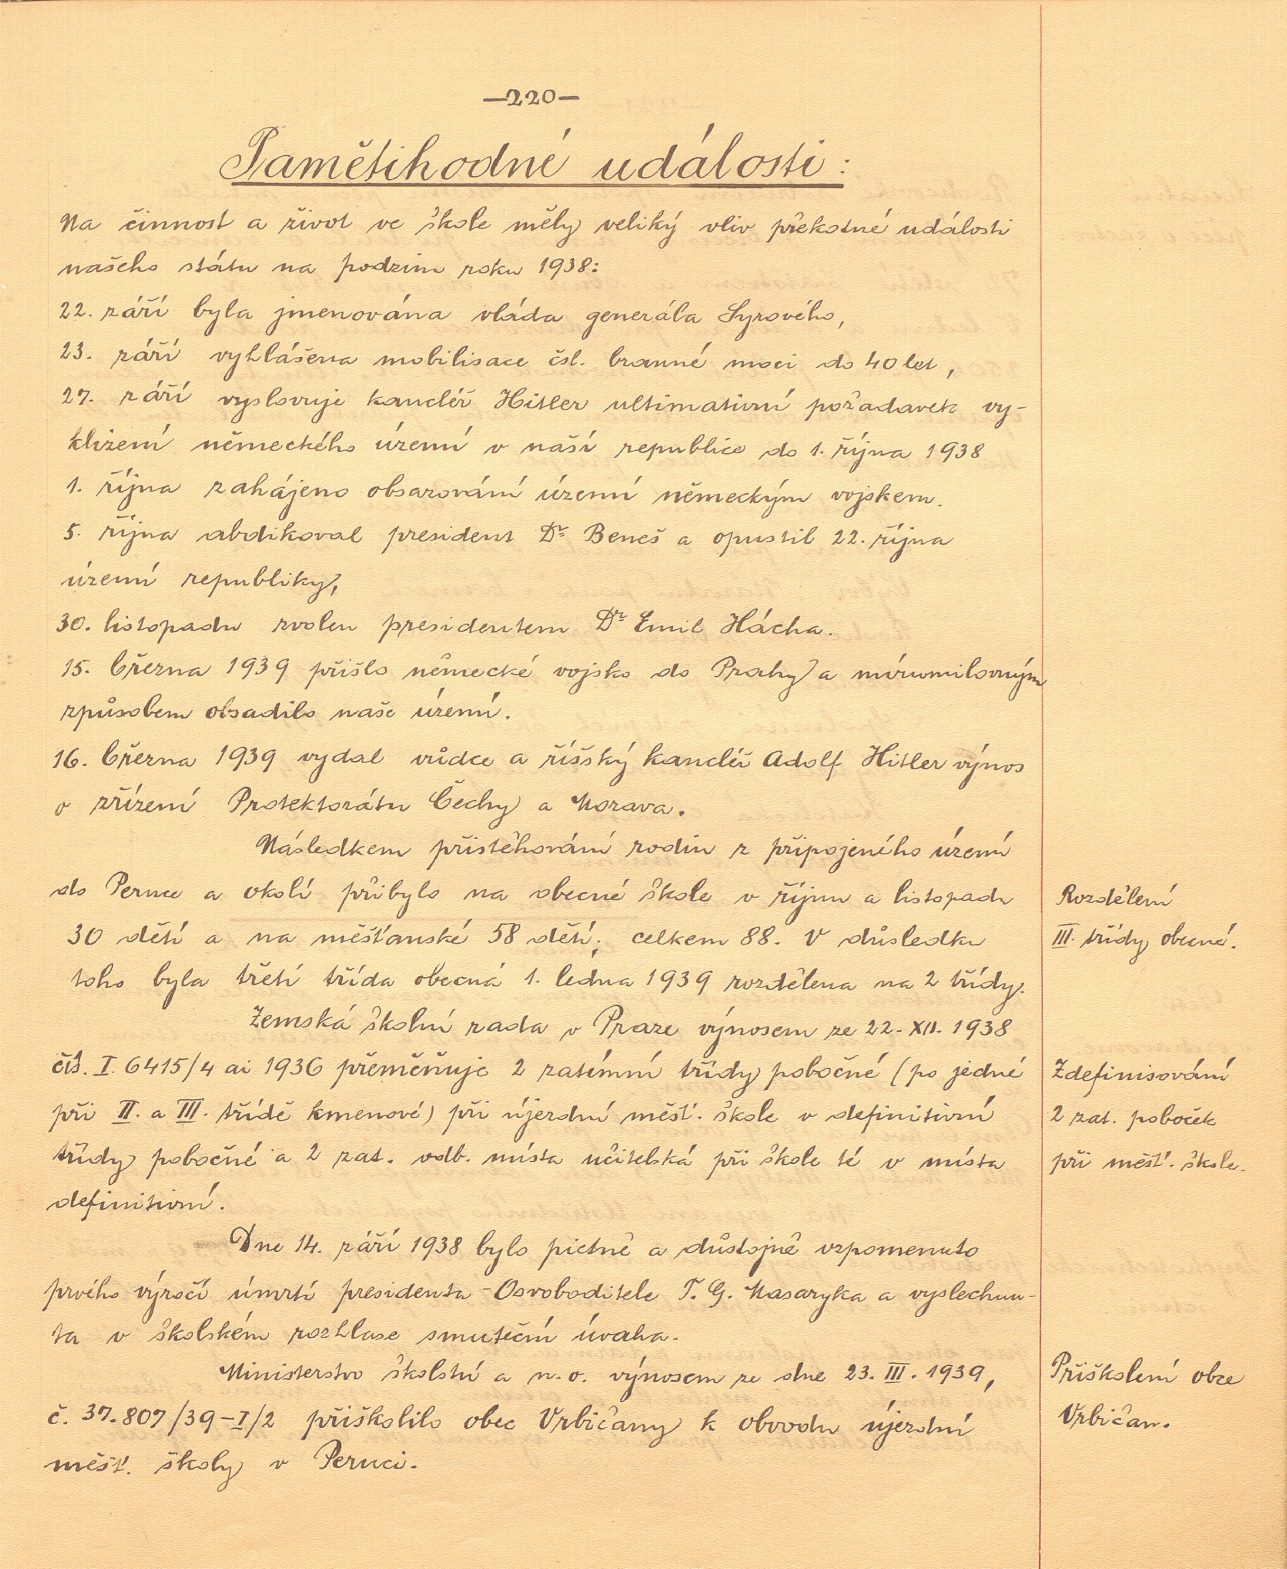 —220—
Pamětihodné události:
Na činnost a život ve škole měly veliký vliv překotné události
našeho státu na podzim roku 1938:
22. září byla jmenována vláda generála Syrového,
23. září vyhlášena mobilisace čsl. branné moci do 40 let,
27. září vyslovuje kancléř Hitler ultimativní požadavek vy-
klizení německého území v naší republice do 1. října 1938
1. října zahájeno obsazování území německým vojskem.
5. října abdikoval president Dr. Beneš a opustil 22. října
území republiky,
30. listopadu zvolen presidentem Dr. Emil Hácha.
15. března 1939 přišlo německé vojsko do Prahy a mírumilovným
způsobem obsadilo naše území.
16. března 1939 vydal vůdce a říšský kancléř Adolf Hitler výnos
o zřízení Protektorátu Čechy a Morava.
Následkem přistěhování rodin z připojeného území
do Peruce a okolí přibylo na obecné škole v říjnu a listopadu
Rozdělení
30 dětí a na měšťanské 58 dětí, celkem 88. V důsledku
III. třídy obecné.
toho byla třetí třída obecná 1. ledna 1939 rozdělena na 2 třídy.
Zemská školní rada v Praze výnosem ze 22. XII. 1938
čís. I. 6415/4 ai 1936 přeměňuje 2 zatímní třídy pobočné (po jedné
Zdefinisování
při II. a III. třídě kmenové) při újezdní měšť. škole v definitivní
2 zat. poboček
třídy pobočné a 2 zat. odb. místa učitelská při škole té v místa
při měšť. škole.
definitivní.
Dne 14. září 1938 bylo pietně a důstojně vzpomenuto
prvého výročí úmrtí presidenta-Osvoboditele T. G. Masaryka a vyslechnu-
ta v školském rozhlase smuteční úvaha.
Ministerstvo školství a n. o. výnosem ze dne 23. III. 1939,
Přiškolení obce
č. 37.807/39-I/2 přiškolilo obec Vrbičany k obvodu újezdní
Vrbičan.
měšť. školy v Peruci.